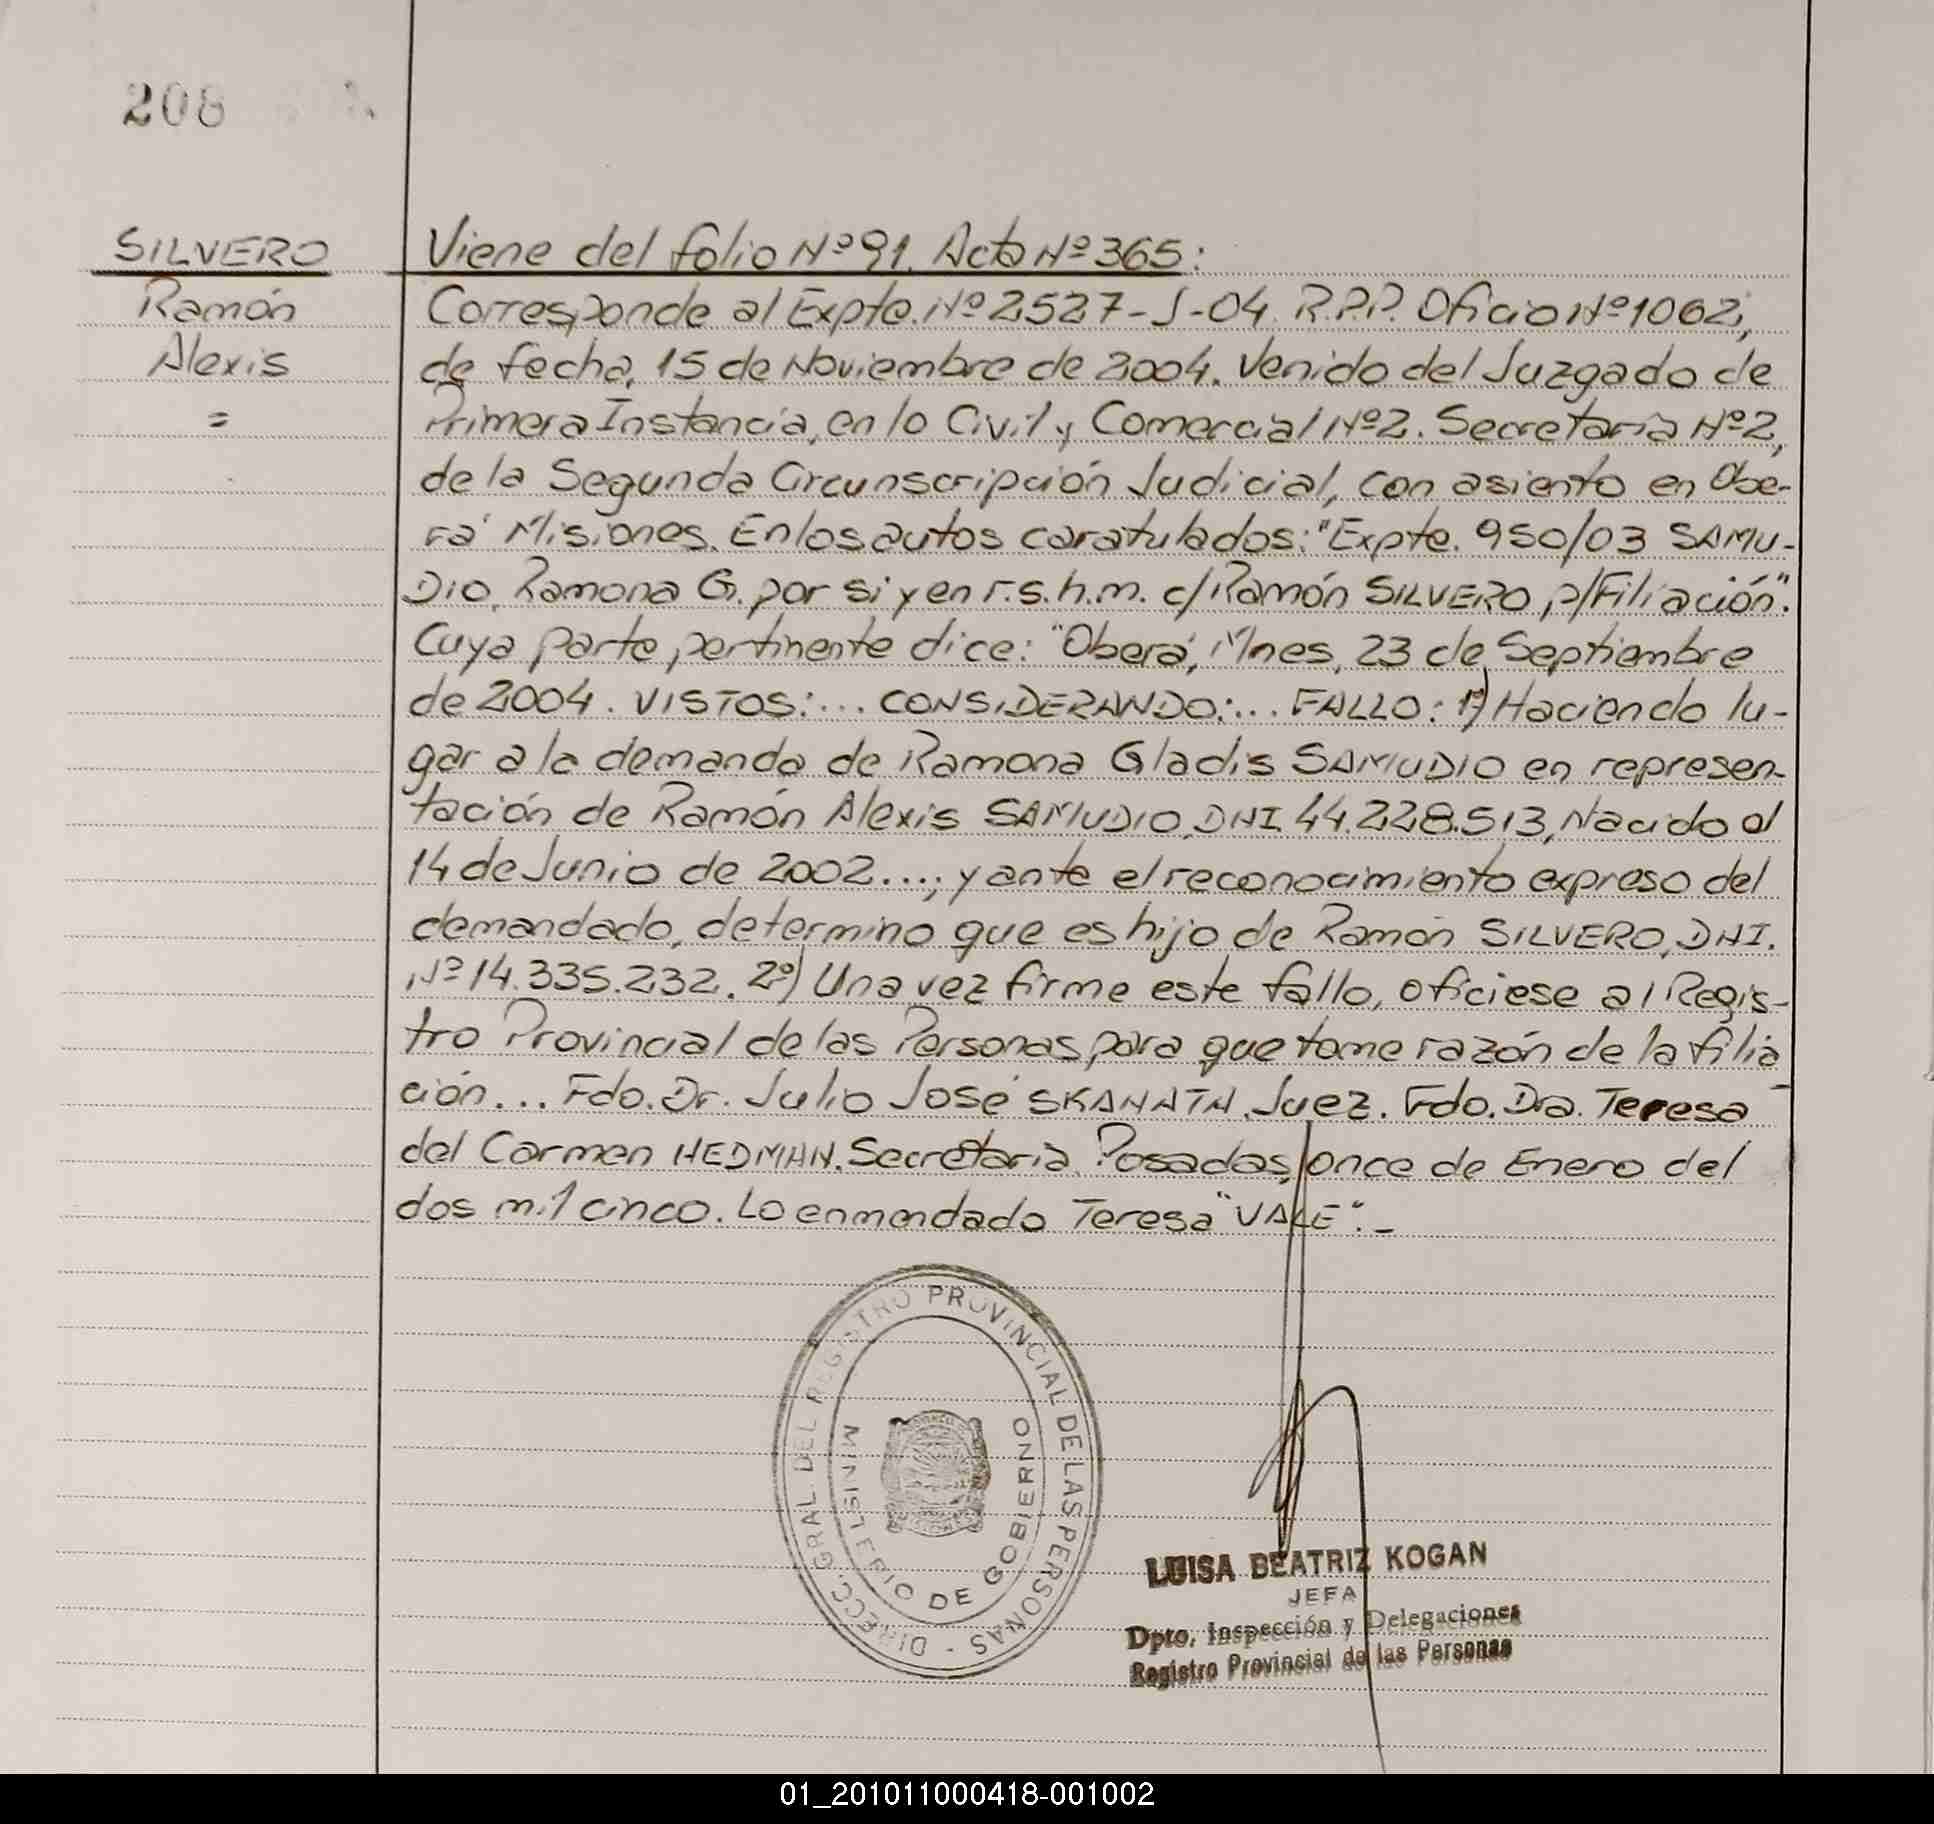 208
SILVERO
Ramón
Alexis
=
Viene del folio Nº 91. Acta Nº 365:
Corresponde al Expte. Nº 2527-J-04 R.P.P. Oficio Nº 1062,
de fecha, 15 de Noviembre de 2004. Venido del Juzgado de
Primera Instancia, en lo Civil y Comercial Nº 2. Secretaria Nº 2,
de la Segunda Circunscripción Judicial, con asiento en Obe-
rá Misiones. En los autos caratulados: "Expte. 950/03 SAMU-
DIO, Ramona G. por si y en r.s.h.m. c/Ramón SILVERO p/Filiación".
Cuya parte pertinente dice: "Oberá, Mnes, 23 de Septiembre
de 2004. VISTOS:... CONSIDERANDO:... FALLO: 1º) Haciendo lu-
gar a la demanda de Ramona Gladis SAMUDIO en represen-
tación de Ramón Alexis SAMUDIO, DNI 44.228.513, Nacido al
14 de Junio de 2002...; y ante el reconocimiento expreso del
demandado, determino que es hijo de Ramón SILVERO, DNI.
Nº 14.335.232. 2º) Una vez firme este fallo, ofíciese al Regis-
tro Provincial de las Personas para que tome razón de la filia
ción... Fdo. Dr. Julio José SKANATA. Juez. Fdo. Dra. Teresa
del Carmen HEDMAN. Secretaria. Posadas, once de Enero del
dos mil cinco. Lo enmendado Teresa "VALE".-
DIRECC. GRAL. DEL REGISTRO PROVINCIAL DE LAS PERSONAS -
MINISTERIO DE GOBIERNO
LUISA BEATRIZ KOGAN
JEFA
Dpto. Inspección y Delegaciones
Registro Provincial de las Personas
01_201011000418-001002